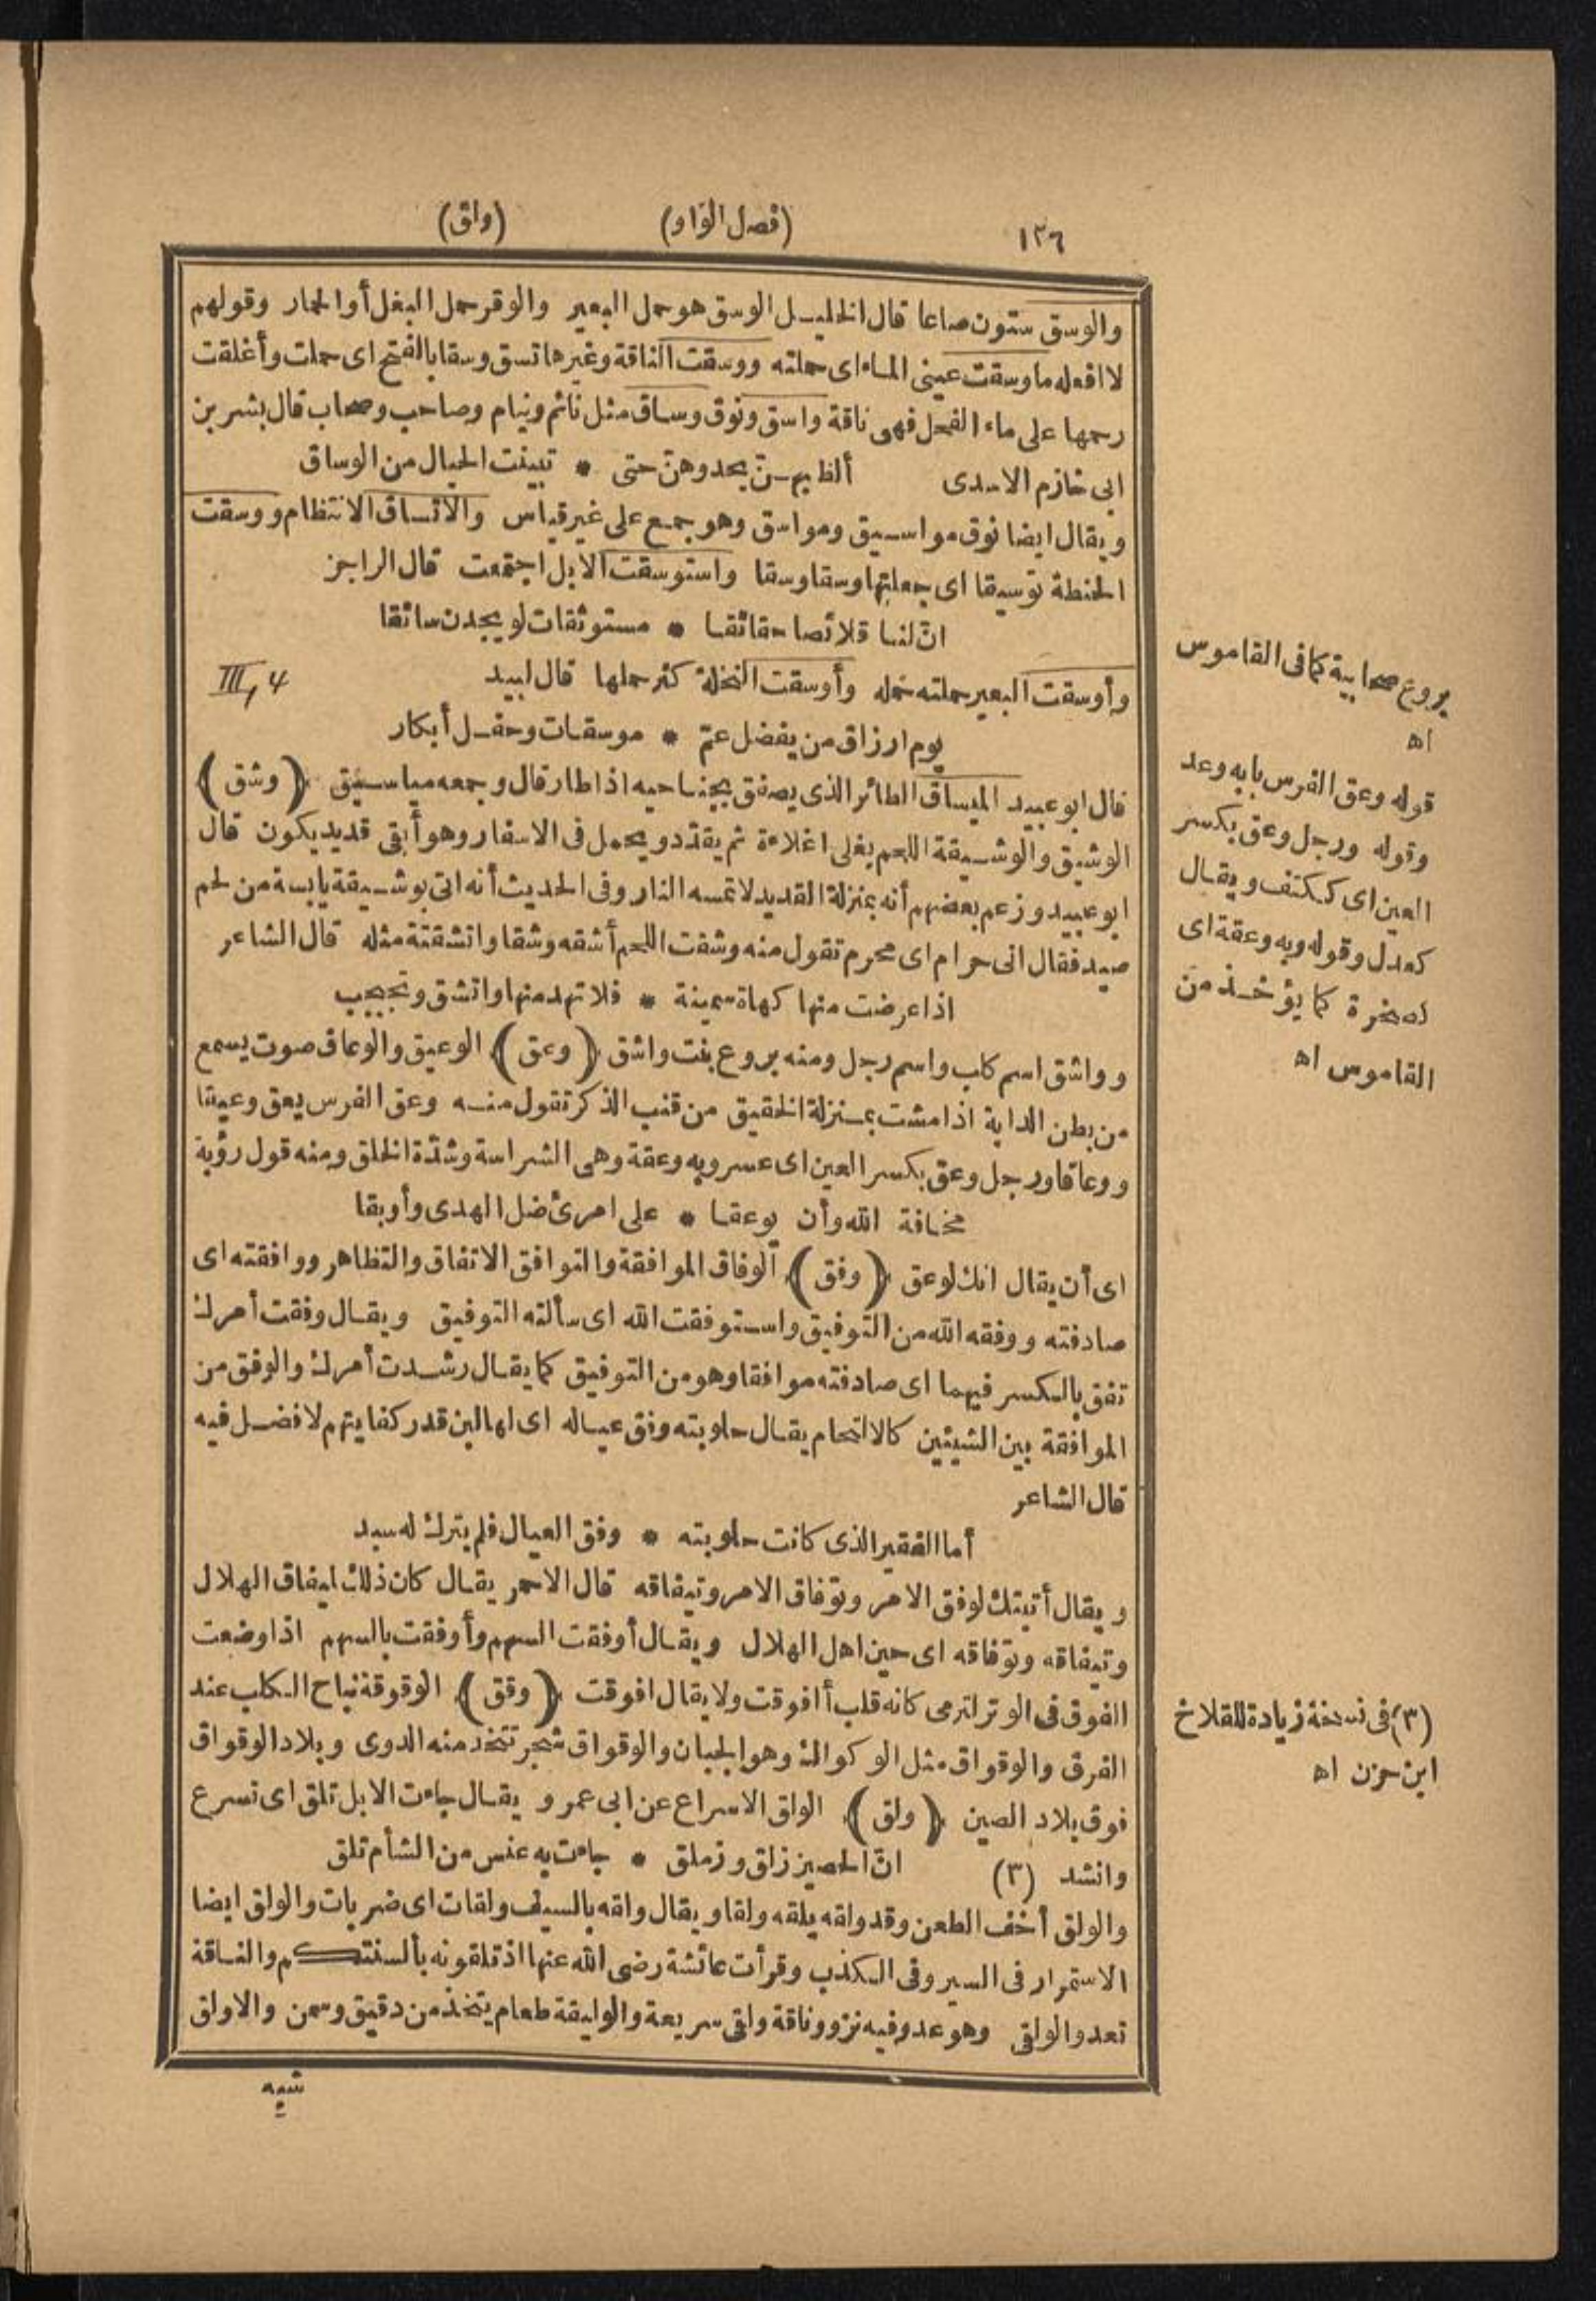 ١٣٦ (فصل الواو) (ولق)
والوسق ستون صاعا قال الخليل الوسق هو حمل البعير والوقر حمل البغل أو الحمار وقولهم
لا افعله ما وسقت عينى الماء اى حملته ووسقت الناقة وغيرها تسق وسقا بالفتح اى حملت وأغلقت
رحمها على ماء الفحل فهى ناقة واسق ونوق وساق مثل نائم ونيام وصاحب وصحاب قال بشر بن
ابى خازم الاسدى ألظ بهنّ يحدوهنّ حتى * تبينت الحيال من الوساق
ويقال ايضا نوق مواسيق ومواسق وهو جمع على غير قياس والاتساق الانتظام ووسقت
الحنطة توسيقا اى جعلتها وسقا وسقا واستوسقت الابل اجتمعت قال الراجز
انّ لنا قلائصا حقائقا * مستوثقات لو يجدن سائقا
وأوسقت البعير حملته حمله وأوسقت النخلة كثر حملها قال لبيد
III, 4
يوم ارزاق من يفضل عمّ * موسقات وحفل أبكار
قال ابو عبيد الميساق الطائر الذى يصفق بجناحيه اذا طار قال وجمعه مياسيق (وشق)
الوشيق والوشيقة اللحم يغلى اغلاءة ثم يقدّد ويحمل فى الاسفار وهو أبقى قديد يكون قال
ابو عبيد وزعم بعضهم أنه بمنزلة القديد لا تمسه النار وفى الحديث أنه اتى بوشيقة يابسة من لحم
صيد فقال انى حرام اى محرم تقول منه وشقت اللحم أشقه وشقا واتشقته مثله قال الشاعر
اذا عرضت منها كهاة سمينة * فلا تهد منها واتشق وتجبجب
وواشق اسم كلب واسم رجل ومنه بروع بنت واشق (وعق) الوعيق والوعاق صوت يسمع
من بطن الدابة اذا مشت بمنزلة الخقيق من قنب الذكر تقول منه وعق الفرس يعق وعيقا
ووعاقا ورجل وعق بكسر العين اى عسر وبه وعقة وهى الشراسة وشدّة الخلق ومنه قول رؤبة
مخافة الله وأن يوعقا * على امرئ ضل الهدى وأوبقا
اى أن يقال انك لوعق (وفق) الوفاق الموافقة والتوافق الاتفاق والتظاهر ووافقته اى
صادفته ووفقه الله من التوفيق واستوفقت الله اى سألته التوفيق ويقال وفقت أمرك
تفق بالكسر فيهما اى صادفته موافقا وهو من التوفيق كما يقال رشدت أمرك والوفق من
الموافقة بين الشيئين كالالتحام يقال حلوبته وفق عياله اى لها لبن قدر كفايتهم لا فضل فيه
قال الشاعر
أما الفقير الذى كانت حلوبته * وفق العيال فلم يترك له سبد
ويقال أتيتك لوفق الامر وتوفاق الامر وتيفاقه قال الاحمر يقال كان ذلك ليفاق الهلال
وتيفاقه وتوفاقه اى حين اهل الهلال ويقال أوفقت السهم وأوفقت بالسهم اذا وضعت
الفوق فى الوتر لترمى كانه قلب أافوقت ولا يقال افوقت (وقق) الوقوقة نباح الكلب عند
الفرق والوقواق مثل الوكواك وهو الجبان والوقواق شجر تتخذ منه الدوى وبلاد الوقواق
فوق بلاد الصين (ولق) الولق الاسراع عن ابى عمرو يقال جاءت الابل تلق اى تسرع
وانشد (٣) انّ الحصين زلق وزملق * جاءت به عنس من الشأم تلق
والولق أخف الطعن وقد ولقه يلقه ولقا ويقال ولقه بالسيف ولقات اى ضربات والولق ايضا
الاستمرار فى السير وفى الكذب وقرأت عائشة رضى الله عنها اذ تلقونه بألسنتكم والناقة
تعدو الولقى وهو عدو فيه نزو وناقة ولقى سريعة والوليقة طعام يتخذ من دقيق وسمن والاولق
شبه
بروع صحابية كما فى القاموس
اه
قوله وعق الفرس بابه وعد
وقوله ورجل وعق بكسر
العين اى ككتف ويقال
كعدل وقوله وبه وعقة اى
كصخرة كما يؤخذ من
القاموس اه
(٣) فى نسخة زيادة للقلاخ
ابن حزن اه